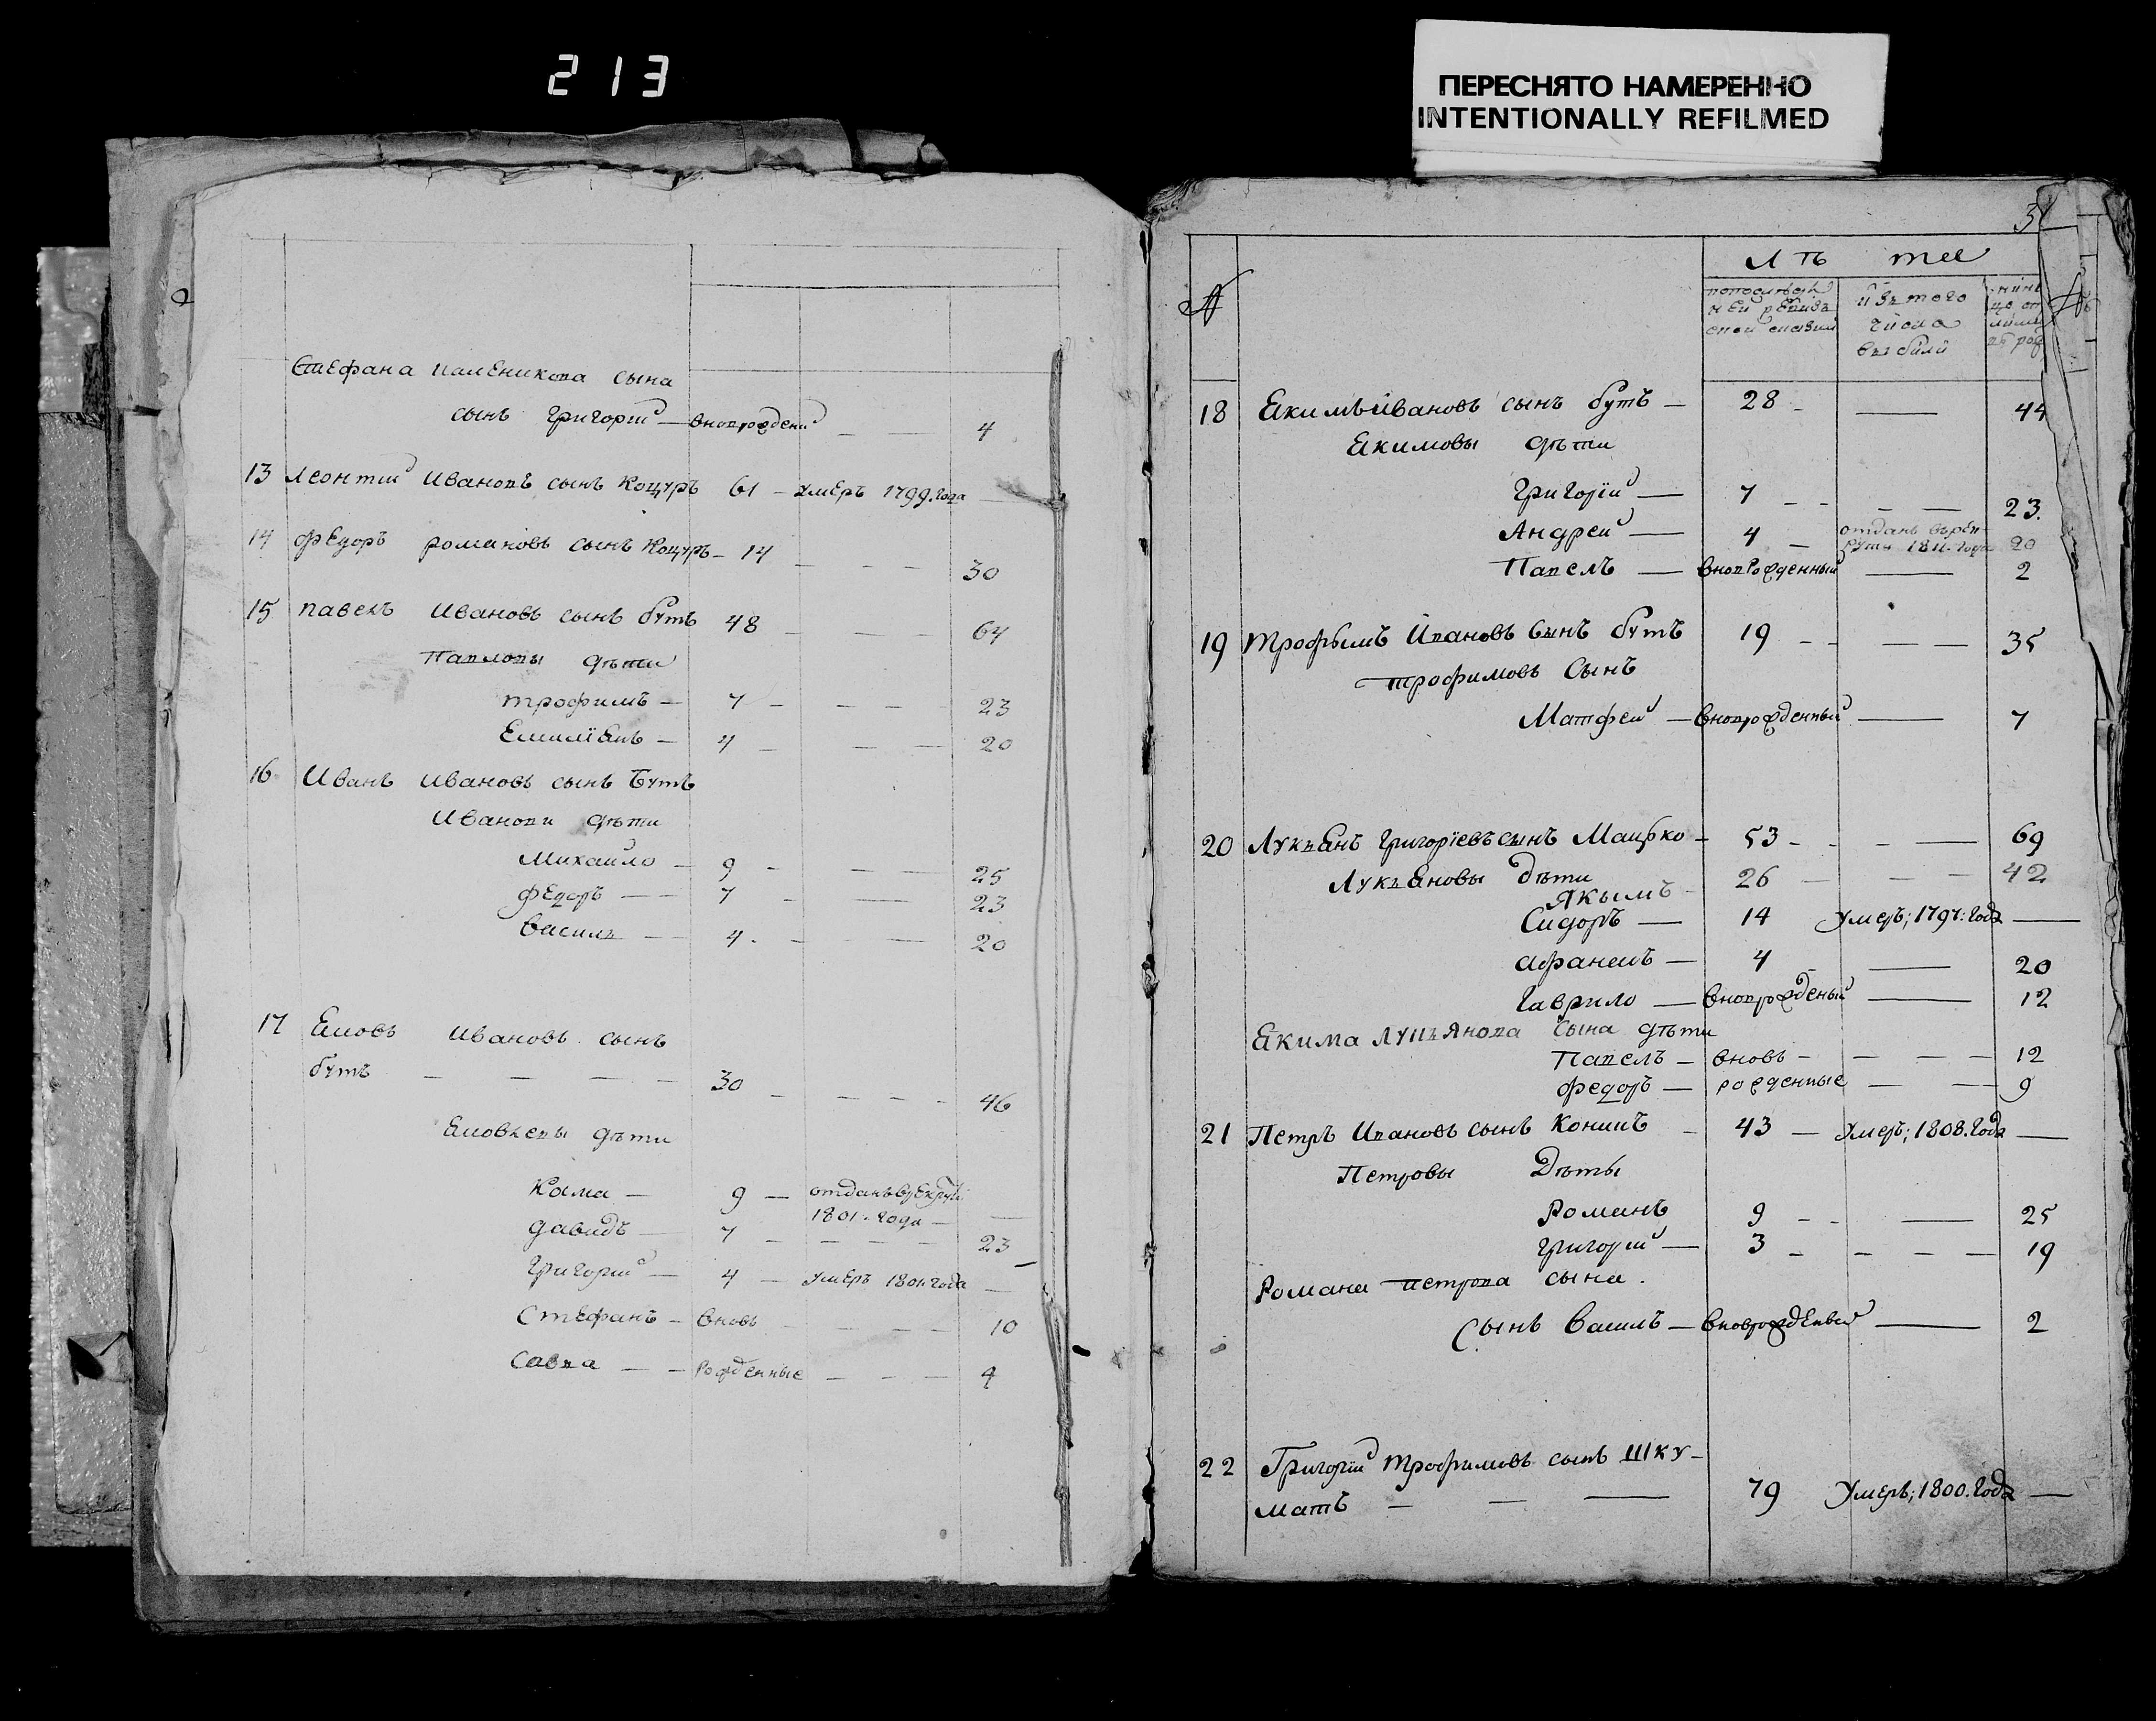 213
ПЕРЕСНЯТО НАМЕРЕННО
INTENTIONALLY REFILMED
Стефана сына
сынъ Григорий — вноврождений — — 4
13 Леонтий Ивановъ сынъ Коцуръ 61 — умеръ 1799. года —
14 Федоръ романовъ сынъ Коцуръ — 14 — — — 30
15 павелъ Ивановъ сынъ бутъ 48 — — — 64
Павловы дѣти
трофимъ — 7 — — — 23
Емилїянъ — 4 — — — 20
16 Иванъ Ивановъ сынъ Бутъ
Иванови дѣти
Михайло — 9 — — — 25
Федоръ — 7 — — 23
Василь — 4 — — 20
17 Ивановъ сынъ
бутъ — — — — 30 — — — — 46
дѣти
9 — отданъ в рекруты
1801. года — —
давидъ — 7 — — — — 23
Григорий — 4 — умеръ 1801 года —
Стефанъ — вновь — — — 10
Савва — — рожденные — — — 4
№ лѣта
попослѣдней ревизской сказки
изъ того
числа
выбили
18 Екимъ Ивановъ сынъ бутъ — 28 — — 44
Екимовы дѣти
Григорїй — 7 — — — — 23.
Андрей — 4 — отданъ в рекруты 1811. года 20
Павелъ — вноврожденный — 2
19 Трофымъ Ивановъ сынъ бутъ 19 — — — — 35
трофимовъ сынъ
Матфей — вноврожденный — 7
20 Лукъянъ Григорїевъ сынъ — 53 — — — — 69
Лукъяновы дѣти
Якымъ — 26 — — — 42
Сидоръ — 14 умеръ; 1797: года —
Афанеий — 4 — — 20
Гаврило — вноврожденый — 12
Екима Лукъянова сына дѣти
Павелъ — вновь — — — — 12
Федоръ — рожденные — — 9
21 Петръ Ивановъ сынъ — 43 — умеръ; 1808. года —
Петровы Дѣты
Романъ 9 — — — 25
Григорий — 3 — — — — 19
Романа петрова сына.
Сынъ Василъ — вноврожденный — 2
22 Григорїй Трофимовъ сынъ Шку-
матъ — — — 79 умеръ; 1800. года —